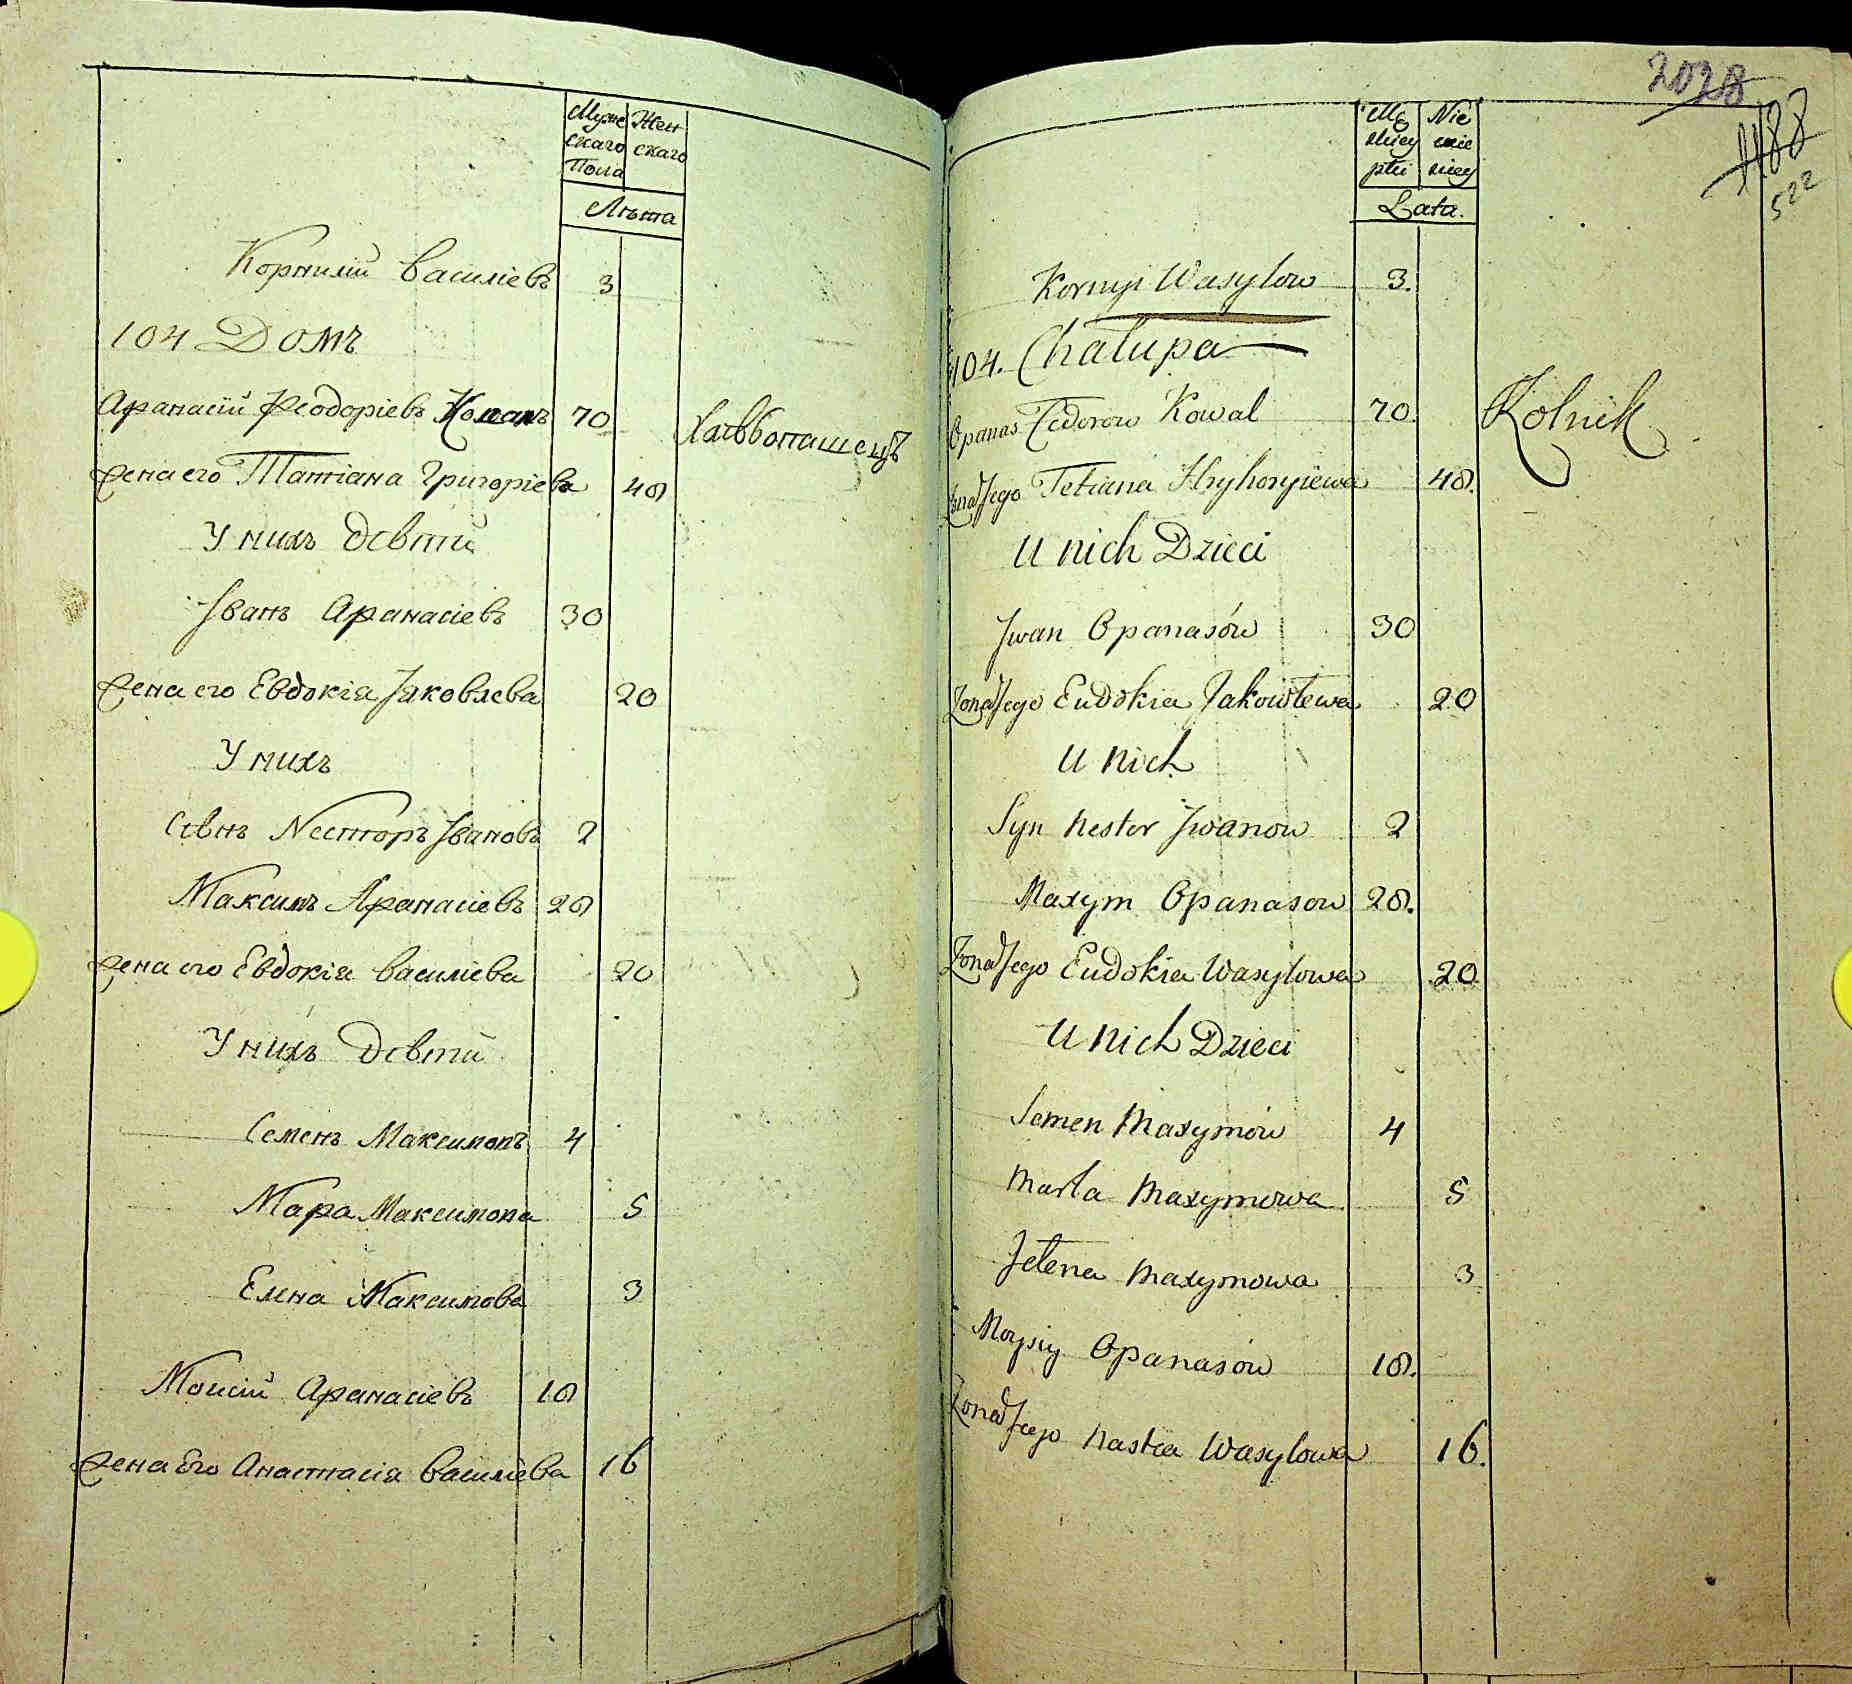 Муже Жен
скаго скаго
Пола
Лѣта
Корнилій Василіевъ 3
104 Домъ
Афанасій Феодоріевъ 70 Хлѣбопашецъ
Жена его Татіана Григоріева 48
У нихъ Дѣти
Іванъ Афанасіевъ 30
Жена его Евдокія Іаковлева 20
У нихъ
Сынъ Несторъ Івановъ 2
Максимъ Афанасіевъ 28
Жена его Евдокія Василіева 20
У нихъ Дѣти
Семенъ Максимовъ 4
Мара Максимова 5
Елена Максимова 3
Моисій Афанасіевъ 18
Жена Его Анастасія Василіева 16
2028
1188
522
Mę Nie
skiey wie
płci skiey
Lata.
Kornyi Wasylow 3.
104. Chałupa
Opanas Fedorow Kowal 70. Rolnik
Zona Jego Tetiana Hryhoryiewa 48.
U nich Dzieci
Jwan Opanasów 30
Zona Jego Eudokia Jakowlewa 20
U nich
Syn Nestor Jwanow 2
Maxym Opanasow 28.
Zona Jego Eudokia Wasylowa 20
U nich Dzieci
Semen Maxymów 4
Marta Maxymowa 5
Jelena Maxymowa 3
Moysiy Opanasów 18.
Zona Jego Nastia Wasylowa 16.